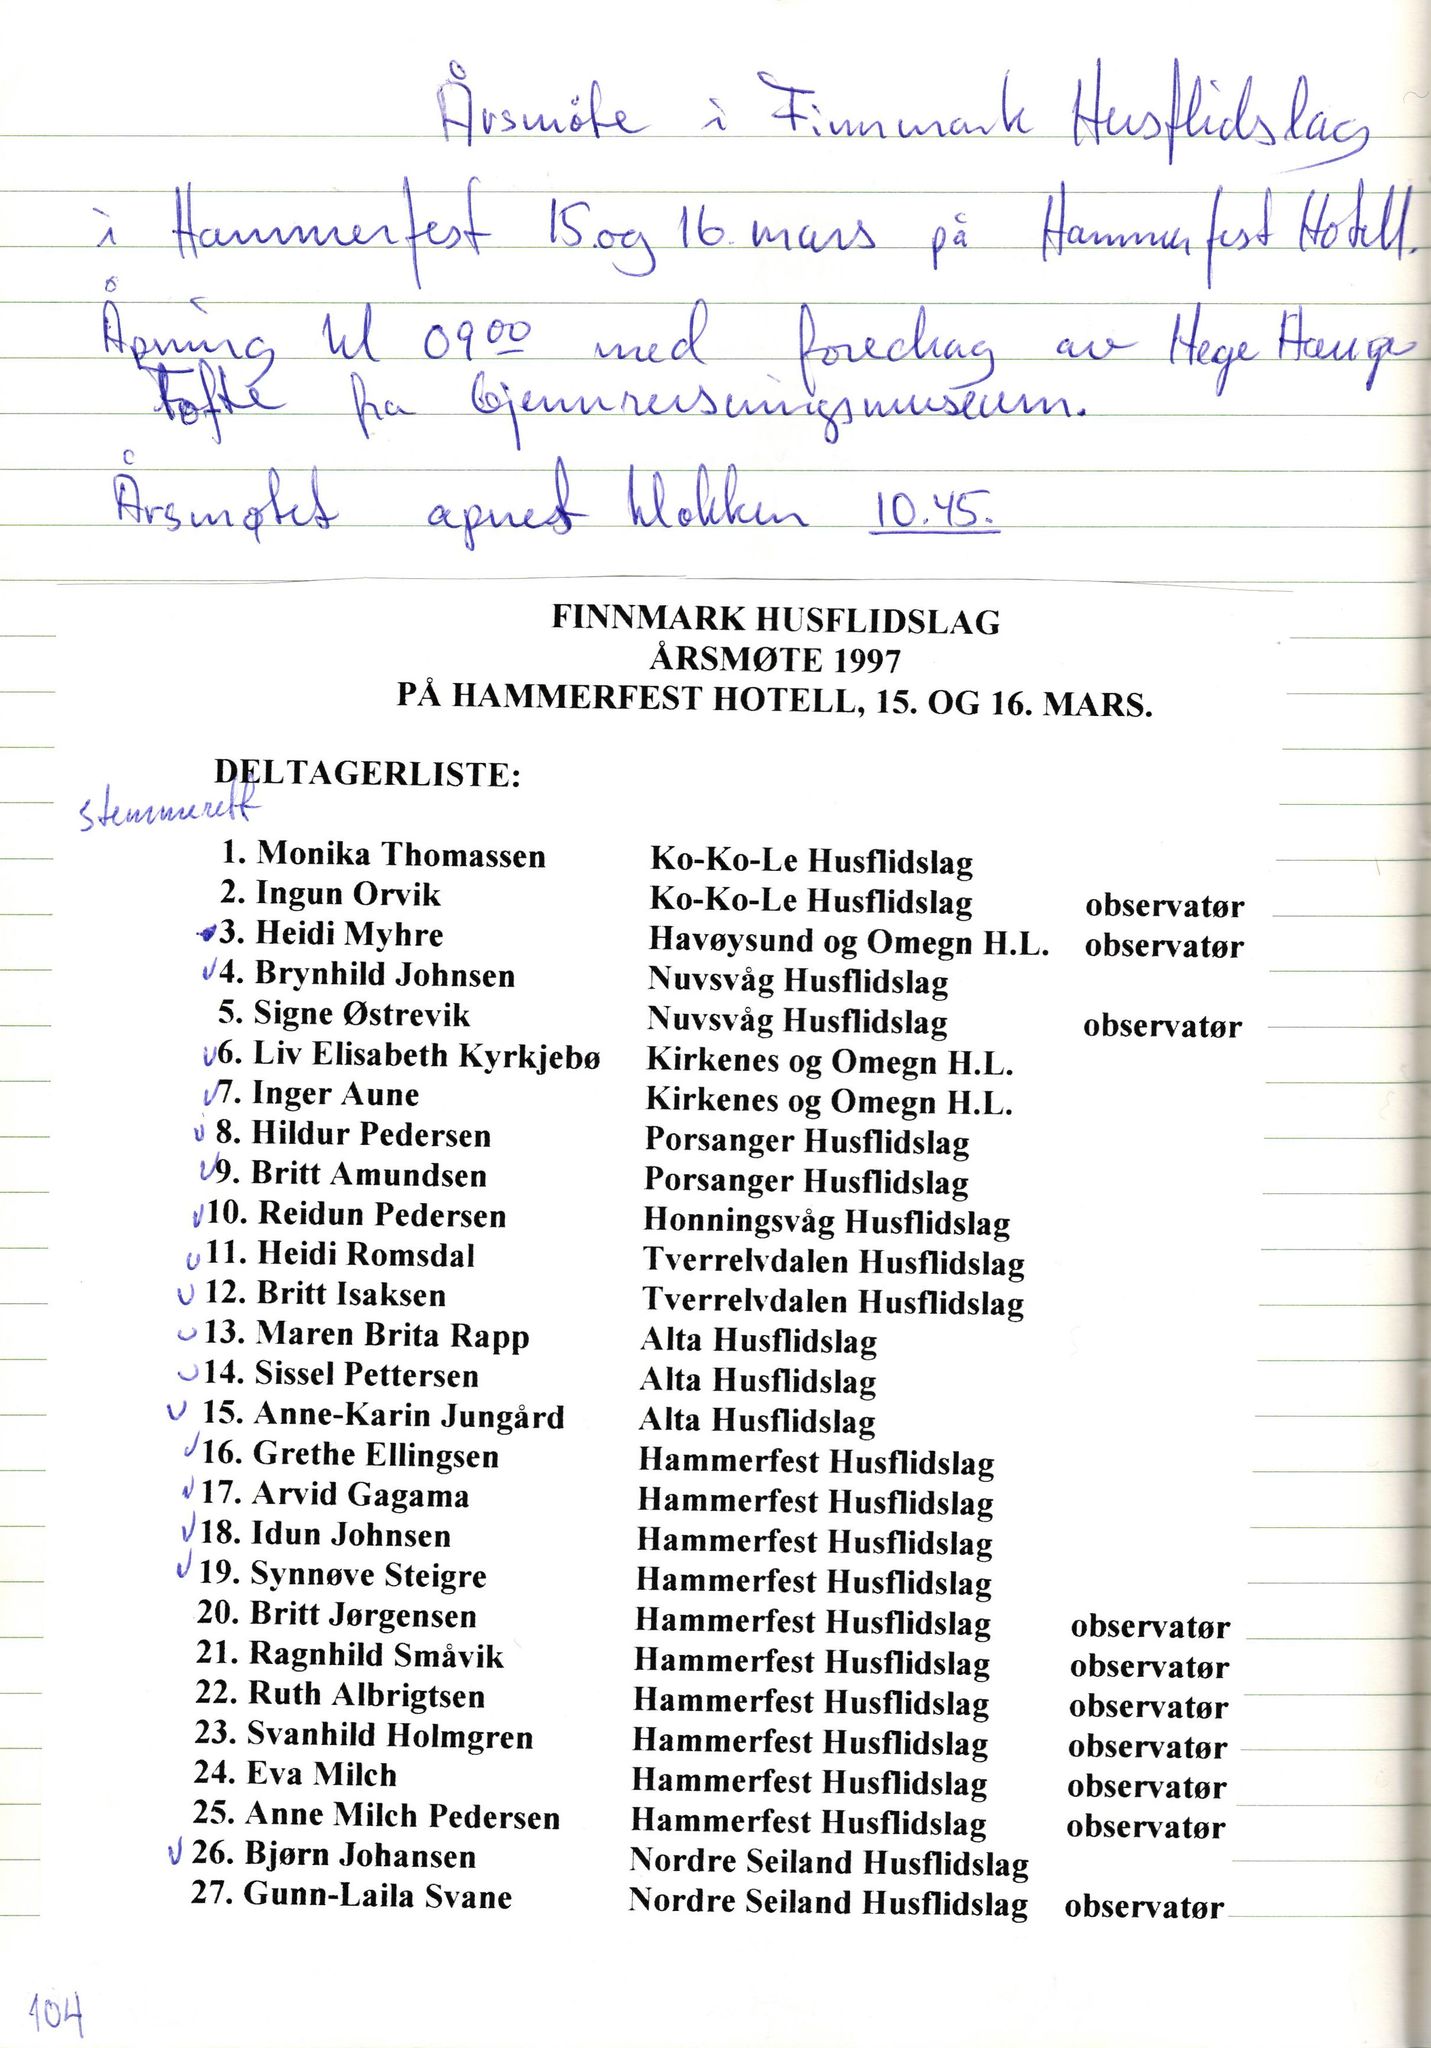 Årsmøte i Finnmark Husflidslag
i Hammerfest 15. og 16. mars på Hammerfest Hotell.
Åpning kl 09 00 med foredrag av Hege Hauge
Tofte fra Gjenreisningsmuseum.
Årsmøtet åpnet klokken 10.45.
FINNMARK HUSFLIDSLAG
ÅRSMØTE 1997
PÅ HAMMERFEST HOTELL, 15. OG 16. MARS.
DELTAGERLISTE:
stemmerett
1. Monika Thomassen Ko-Ko-Le Husflidslag
2. Ingun Orvik Ko-Ko-Le Husflidslag observatør
3. Heidi Myhre Havøysund og Omegn H.L. observatør
4. Brynhild Johnsen Nuvsvåg Husflidslag
5. Signe Østrevik Nuvsvåg Husflidslag observatør
6. Liv Elisabeth Kyrkjebø Kirkenes og Omegn H.L.
7. Inger Aune Kirkenes og Omegn H.L.
8. Hildur Pedersen Porsanger Husflidslag
9. Britt Amundsen Porsanger Husflidslag
10. Reidun Pedersen Honningsvåg Husflidslag
11. Heidi Romsdal Tverrelvdalen Husflidslag
12. Britt Isaksen Tverrelvdalen Husflidslag
13. Maren Brita Rapp Alta Husflidslag
14. Sissel Pettersen Alta Husflidslag
15. Anne-Karin Jungård Alta Husflidslag
16. Grethe Ellingsen Hammerfest Husflidslag
17. Arvid Gagama Hammerfest Husflidslag
18. Idun Johnsen Hammerfest Husflidslag
19. Synnøve Steigre Hammerfest Husflidslag
20. Britt Jørgensen Hammerfest Husflidslag observatør
21. Ragnhild Småvik Hammerfest Husflidslag observatør
22. Ruth Albrigtsen Hammerfest Husflidslag observatør
23. Svanhild Holmgren Hammerfest Husflidslag observatør
24. Eva Milch Hammerfest Husflidslag observatør
25. Anne Milch Pedersen Hammerfest Husflidslag observatør
26. Bjørn Johansen Nordre Seiland Husflidslag
27. Gunn-Laila Svane Nordre Seiland Husflidslag observatør
104